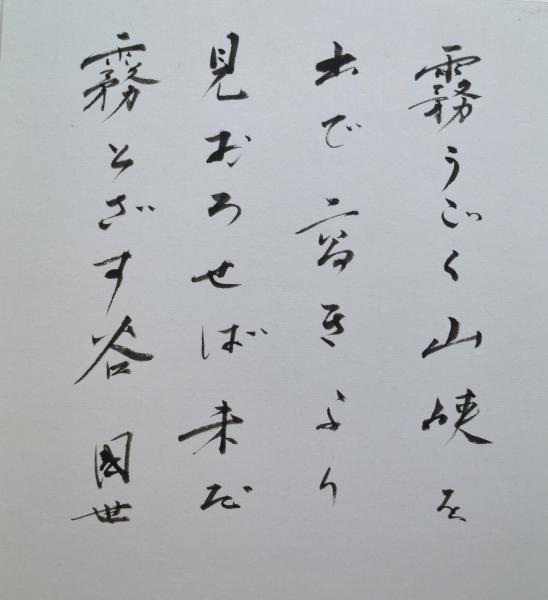 霧うごく山峡を
出で高きより
見おろせば未だ
霧とざす谷 国世